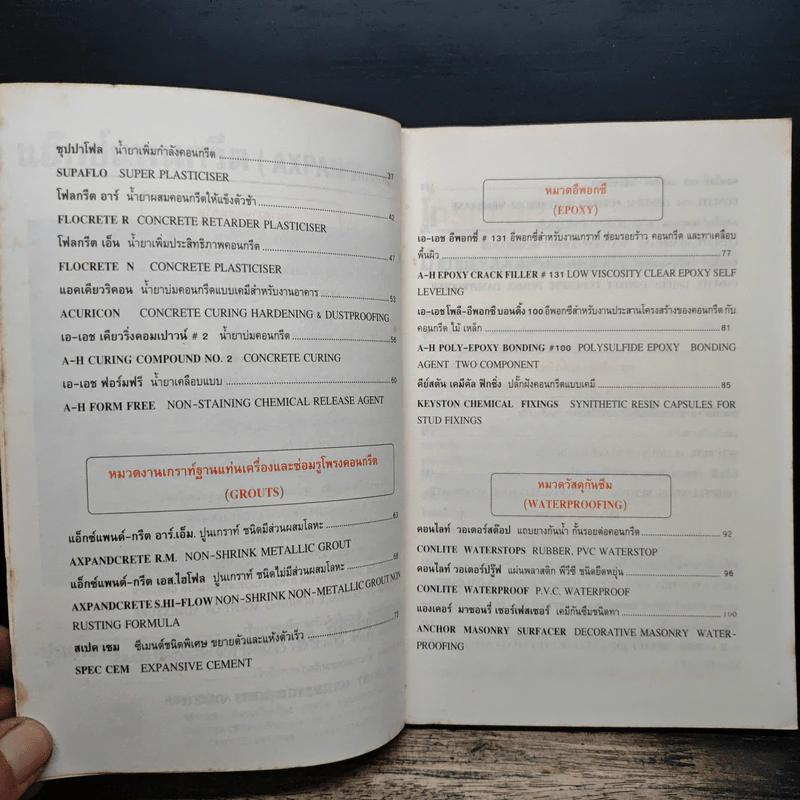 ซุปปาโฟล น้ำยาเพิ่มกำลังคอนกรีต 37
SUPAFLO SUPER PLASTICISER
โฟลกรีต อาร์ น้ำยาผสมคอนกรีตให้แข็งตัวช้า 42
FLOCRETE R CONCRETE RETARDER PLASTICISER
โฟลกรีต เอ็น น้ำยาเพิ่มประสิทธิภาพคอนกรีต 47
FLOCRETE N CONCRETE PLASTICISER
แอคเคียวริคอน น้ำยาบ่มคอนกรีตแบบเคมีสำหรับงานอาคาร 53
ACURICON CONCRETE CURING HARDENING & DUSTPROOFING
เอ-เอช เคียวริ่งคอมเปาวน์ # 2 น้ำยาบ่มคอนกรีต 56
A-H CURING COMPOUND NO. 2 CONCRETE CURING
เอ-เอช ฟอร์มฟรี น้ำยาเคลือบแบบ 60
A-H FORM FREE NON-STAINING CHEMICAL RELEASE AGENT
หมวดงานเกราท์ฐานแท่นเครื่องและซ่อมรูโพรงคอนกรีต
(GROUTS)
แอ็กซ์แพนด์-กรีต อาร์.เอ็ม. ปูนเกราท์ ชนิดมีส่วนผสมโลหะ 63
AXPANDCRETE R.M. NON-SHRINK METALLIC GROUT
แอ็กซ์แพนด์-กรีต เอส.ไฮโฟล ปูนเกราท์ ชนิดไม่มีส่วนผสมโลหะ 68
AXPANDCRETE S.HI-FLOW NON-SHRINK NON-METALLIC GROUT NON
RUSTING FORMULA
สเปค เซม ซีเมนต์ชนิดพิเศษ ขยายตัวและแห้งตัวเร็ว 73
SPEC CEM EXPANSIVE CEMENT
หมวดอีพอกซี่
(EPOXY)
เอ-เอช อีพอกซี่ # 131 อีพอกซี่สำหรับงานเกราท์ ซ่อมรอยร้าว คอนกรีต และทาเคลือบ
พื้นผิว 77
A-H EPOXY CRACK FILLER # 131 LOW VISCOSITY CLEAR EPOXY SELF
LEVELING
เอ-เอช โพลี-อีพอกซี่ บอนดิ้ง 100 อีพอกซี่สำหรับงานประสานโครงสร้างของคอนกรีต กับ
คอนกรีต ไม้ เหล็ก 81
A-H POLY-EPOXY BONDING #100 POLYSULFIDE EPOXY BONDING
AGENT TWO COMPONENT
คีย์สตัน เคมีคัล ฟิกซิ่ง ปลั๊กฝังคอนกรีตแบบเคมี 85
KEYSTON CHEMICAL FIXINGS SYNITHETIC RESIN CAPSULES FOR
STUD FIXINGS
หมวดวัสดุกันซึม
(WATERPROOFING)
คอนไลท์ วอเตอร์สต๊อป แถบยางกันน้ำ กั้นรอยต่อคอนกรีต 92
CONLITE WATERSTOPS RUBBER, PVC WATERSTOP
คอนไลท์ วอเตอร์ปรู๊ฟ แผ่นพลาสติก พีวีซี ชนิดยืดหยุ่น 96
CONLITE WATERPROOF P.V.C. WATERPROOF
แองเคอร์ มาซอนรี่ เซอร์เฟสเซอร์ เคมีกันซึมชนิดทา 100
ANCHOR MASONRY SURFACER DECORATIVE MASONRY WATER-
PROOFING